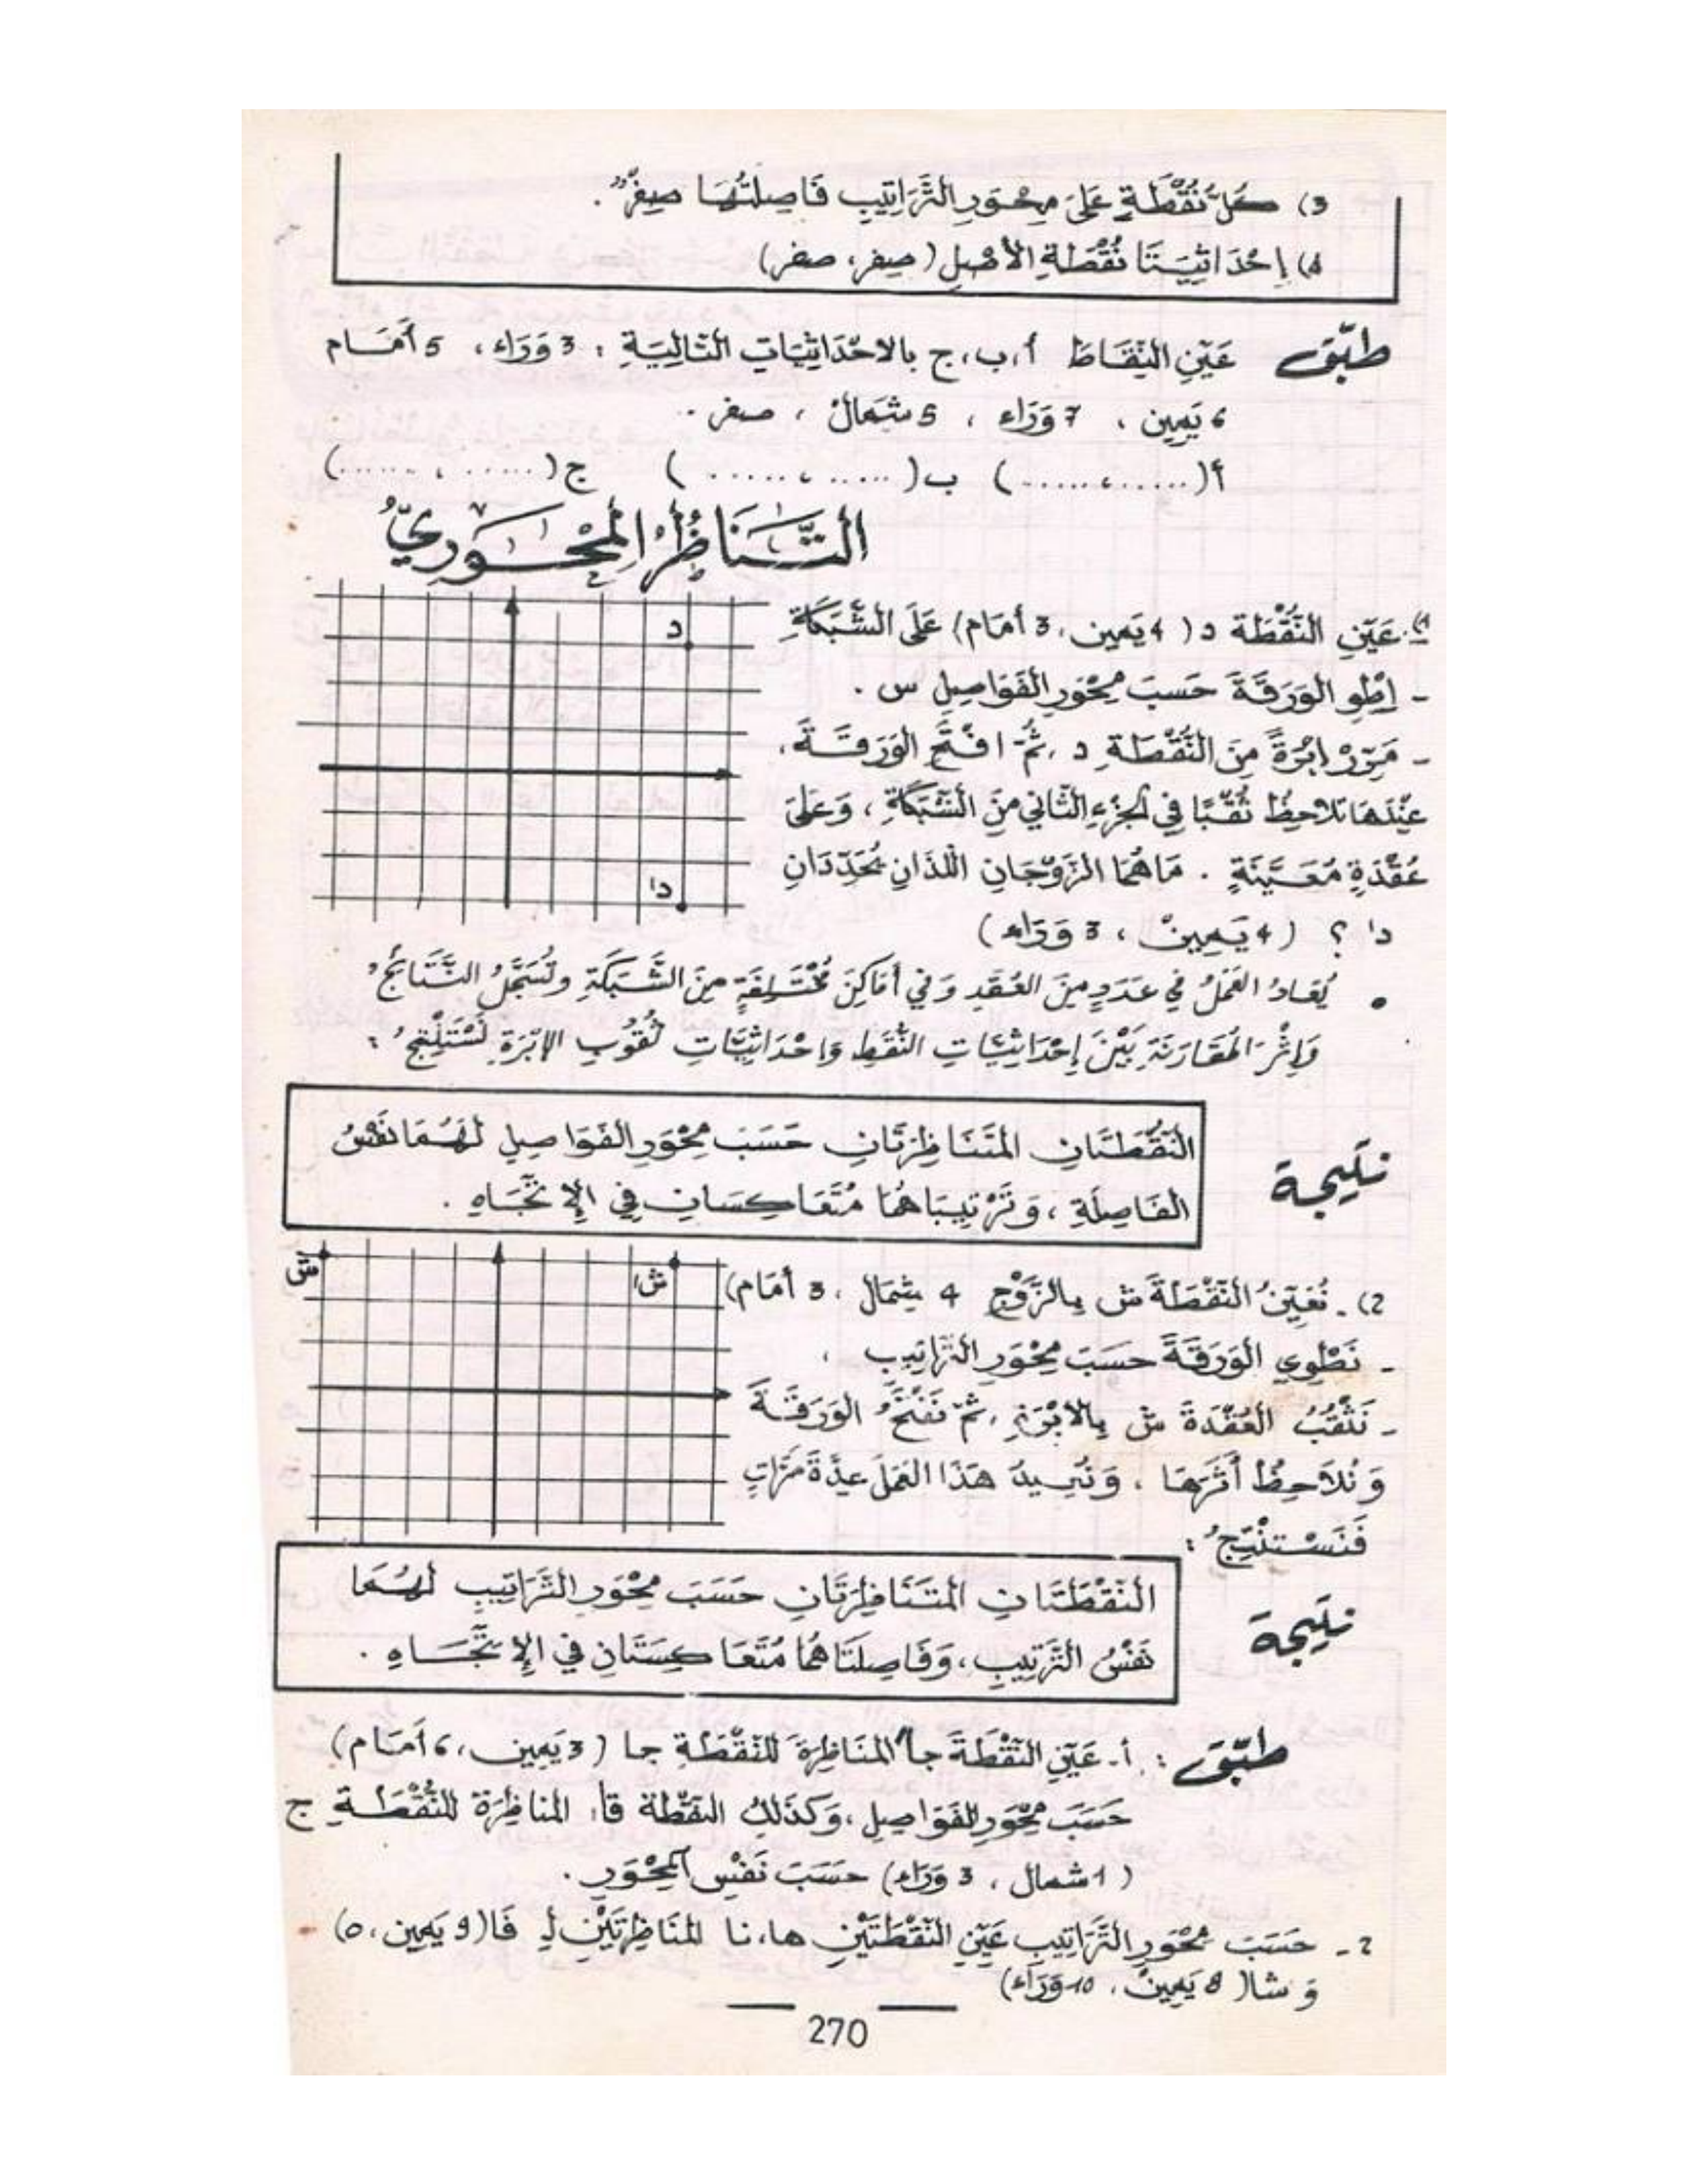 3) كُلُّ نُقْطَةٍ عَلَى مِحْوَرِ التَّرَاتِيبِ فَاصِلَتُهَا صِفْرٌ".
4) إِحْدَاثِيَّتَا نُقْطَةِ الأَصْلِ (صِفر، صفر)
طبّق عَيّنِ النِّقَاطَ أ، ب، ج بالاحْدَاثِيَاتِ التَّالِيَةِ : 3 وَرَاء، 5 أَمَام
6 يَمِين ، 7 وَرَاء ، 5 شمَالْ ، صفر .
أ(......،......) ب(......،......) ج(......،......)
التَّنَاظُرُ المِحْوَرِيُّ
1) - عَيّنِ النُّقْطَة د (4 يَمِين، 3 أَمَام) عَلَى الشَّبَكَةِ
- اِطْوِ الوَرَقَةَ حَسبَ مِحْوَرِ الفَوَاصِلِ س .
- مَرِّرْ إِبْرَةً مِنَ النُّقْطَةِ د ، ثُمَّ افْتَحِ الوَرَقَةَ،
عِنْدَهَا تُلاَحِظُ ثُقْبًا فِي الجُزْءِ الثَّانِي مِنَ الشَّبَكَةِ ، وَعَلَى
عُقْدَةٍ مُعَيَّنَةٍ . مَا هُمَا الزَّوْجَانِ اللَّذَانِ يُحَدِّدَانِ
د' ؟ (4 يَمِينْ ، 3 وَرَاء)
د
د'
• يُعَادُ العَمَلُ فِي عَدَدٍ مِنَ العُقَدِ وَفِي أَمَاكِنَ مُخْتَلِفَةٍ مِنَ الشَّبَكَةِ وتُسَجَّلُ النَّتَائِجُ
وَإِثْرَ المُقَارَنَةِ بَيْنَ إِحْدَاثِيَّاتِ النُّقَطِ وَاحْدَاثِيَّاتِ ثُقُوبِ الإبْرَةِ نَسْتَنْتِجُ :
نتيجة النُّقْطَتَانِ المتَنَاظِرَتَانِ حَسَبَ مِحْوَرِ الفَوَاصِلِ لَهُمَا نَفْسُ
الفَاصِلَةِ ، وَتَرْتِيبَاهُمَا مُتَعَاكِسَانِ فِي الإِتِّجَاهِ .
2) - نُعَيّنُ النُّقْطَةَ ش بِالزَّوْجِ 4 شِمَال ، 3 أمَام)
- نَطْوِي الوَرَقَةَ حَسَبَ مِحْوَرِ التَّرَاتِيبِ ،
- نَثْقُبُ العُقْدَةَ ش بِالابْرَةِ ، ثُمَّ نَفْتَحُ الوَرَقَةَ
وَنُلاَحِظُ أَثَرَهَا ، وَنُعِيدُ هَذَا العَمَلَ عِدَّةَ مَرَّاتٍ
فَنَسْتَنْتِجُ :
ش
ش'
نتيجة النُّقْطَتَانِ المتَنَاظِرَتَانِ حَسَبَ مِحْوَرِ التَّرَاتِيبِ لَهُمَا
نَفْسُ التَّرْتِيبِ ، وَفَاصِلَتَاهُمَا مُتَعَاكِسَتَانِ فِي الإِتِّجَاهِ .
طبّق : أ - عَيّنِ النُّقْطَةَ جا' المنَاظِرَةَ لِلنُّقْطَةِ جا (3 يَمِين ، 6 أَمَام)
حَسَبَ مِحْوَرِ الفَوَاصِلِ ، وَكَذَلِكَ النقْطَة قا، المناظِرَة لِلنُّقْطَةِ ج
(1 شمال ، 3 وَرَاء) حَسَبَ نَفْسِ المِحْوَرِ .
2 - حَسَبَ مِحْوَرِ التَّرَاتِيبِ عَيّنِ النُّقْطَتَيْنِ ها، نا المنَاظِرَتَيْنِ لِـ فَا (9 يَمِين ، 0)
وَ شا (8 يَمِينْ ، 10 وَرَاء)
270